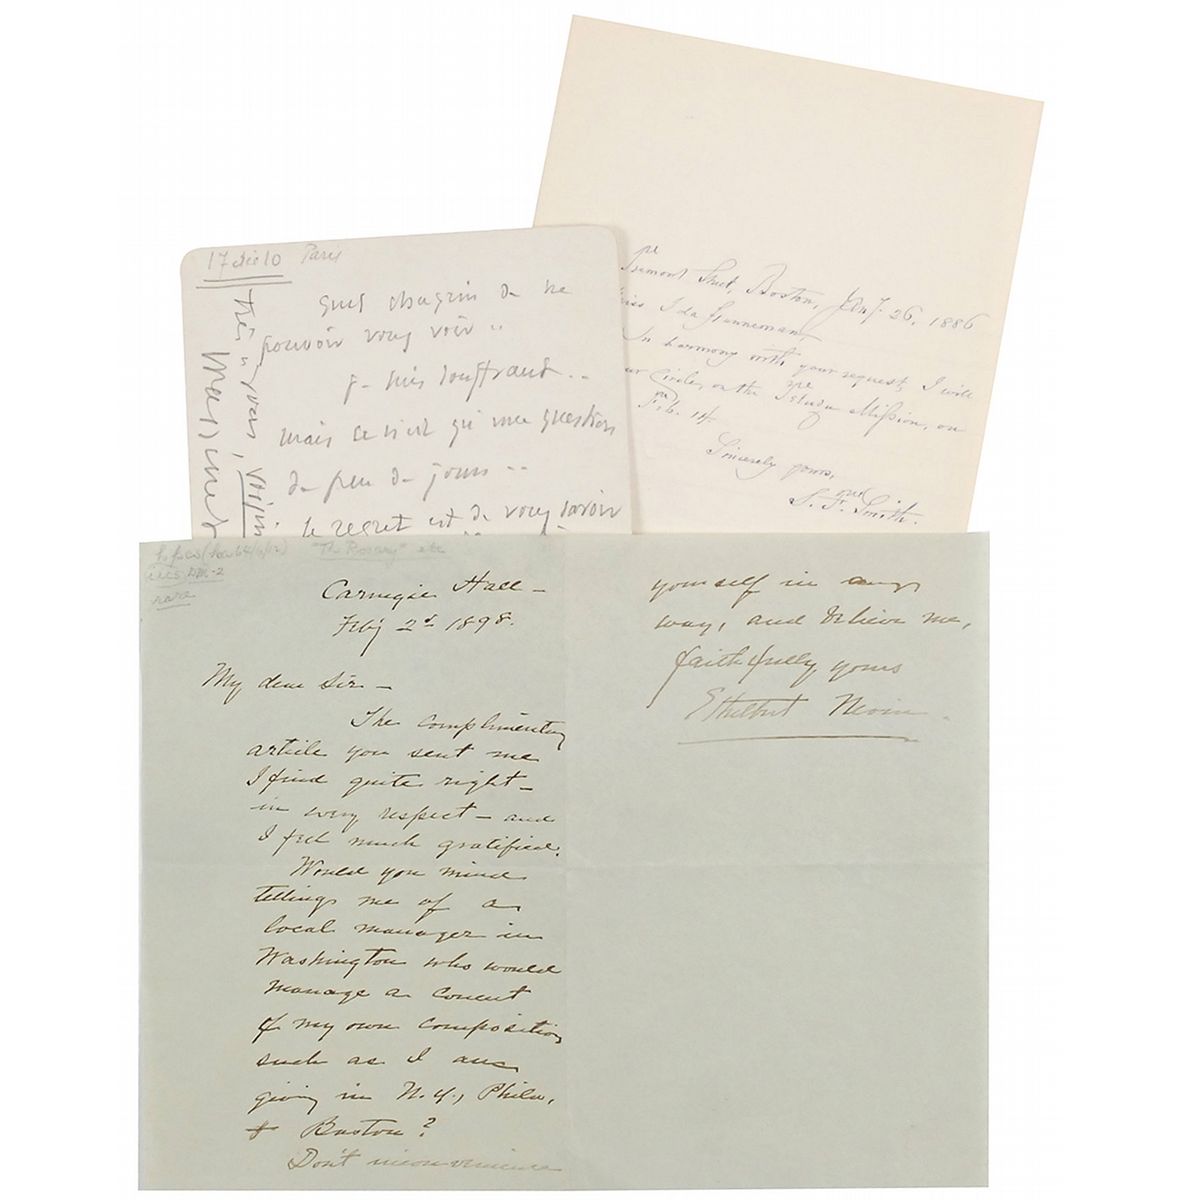 17 Déc 10 Paris
quel chagrin de ne
pouvoir vous voir ..
je suis souffrant ..
mais ce n'est qu'une question
de peu de jours ..
le regret est de vous savoir
Très à vous, voisin
Massenet
Tremont Street, Boston, Jany. 26, 1886
Miss Ida
In harmony with your request, I will
our Circle, on the Mission, on
Feb. 14.
Sincerely yours,
S. F. Smith.
"The Rosary" etc
rare
Carnegie Hall –
Feby 2d 1898.
My dear Sir –
The complimentary
article you sent me
I find quite right –
in every respect – and
I feel much gratified.
Would you mind
telling me of a
local manager in
Washington who would
manage a concert
of my own composition
such as I am
giving in N.Y., Phila,
& Boston?
Don't inconvenience
yourself in any
way, and believe me,
faithfully yours
Ethelbert Nevin.